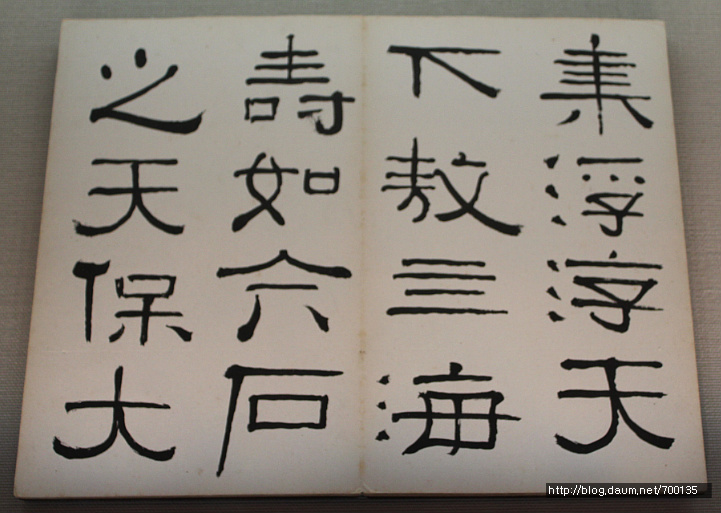 浮淳天
下敖亖海
壽如六石
之天保大
http://blog.daum.net/700135